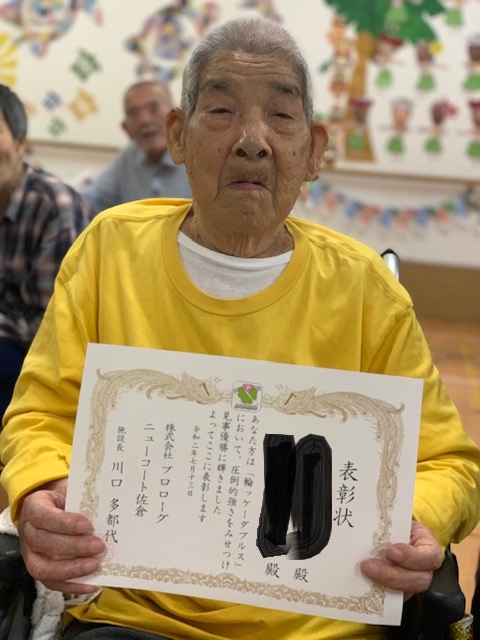 表彰状
殿
殿
あなた方は「輪ッケーダブルス」
において、圧倒的強さをみせつけ
見事優勝に輝きました
よってここに表彰します
令和二年七月十三日
株式会社 プロローグ
ニューコート佐倉
施設長 川口 多都代